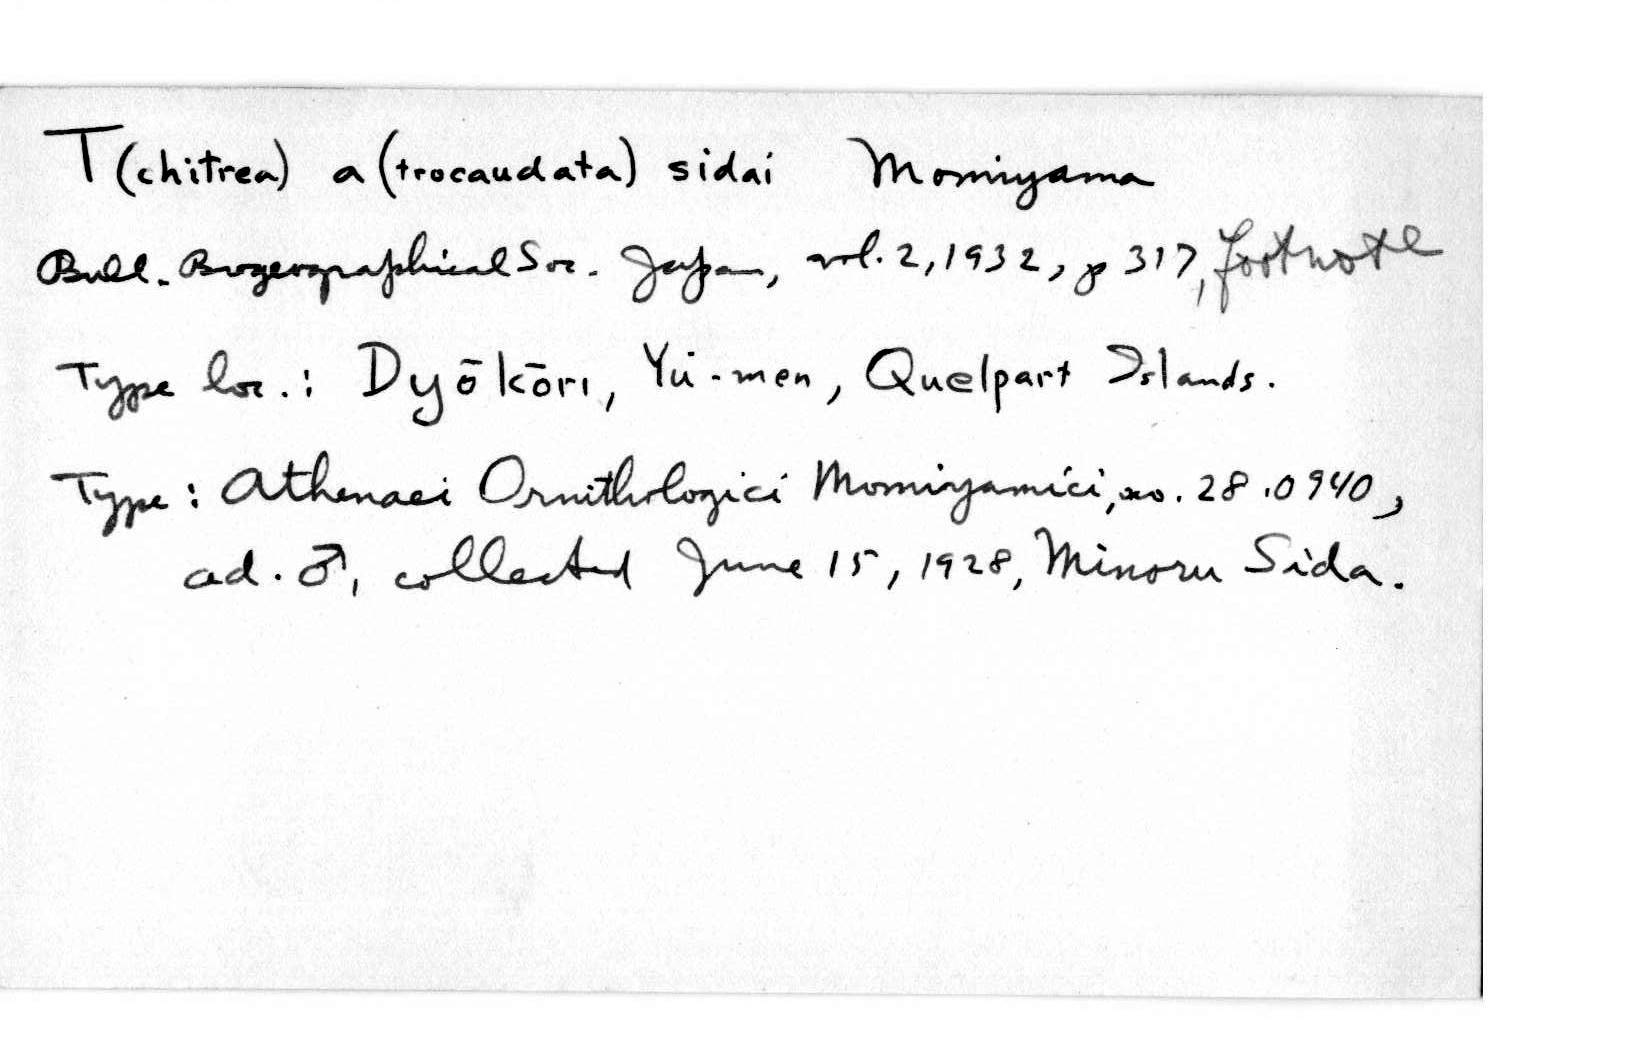 T(chitrea) a(trocaudata) sidai Momiyama
Bull. Biogeographical Soc. Japan, vol. 2, 1932, p 317, footnote
Type loc.: Dyōkōri, Yū-men, Quelpart Islands.
Type: Athenaei Ornithologici Momiyamici, no. 28.0940,
ad. ♂, collected June 15, 1928, Minoru Sida.